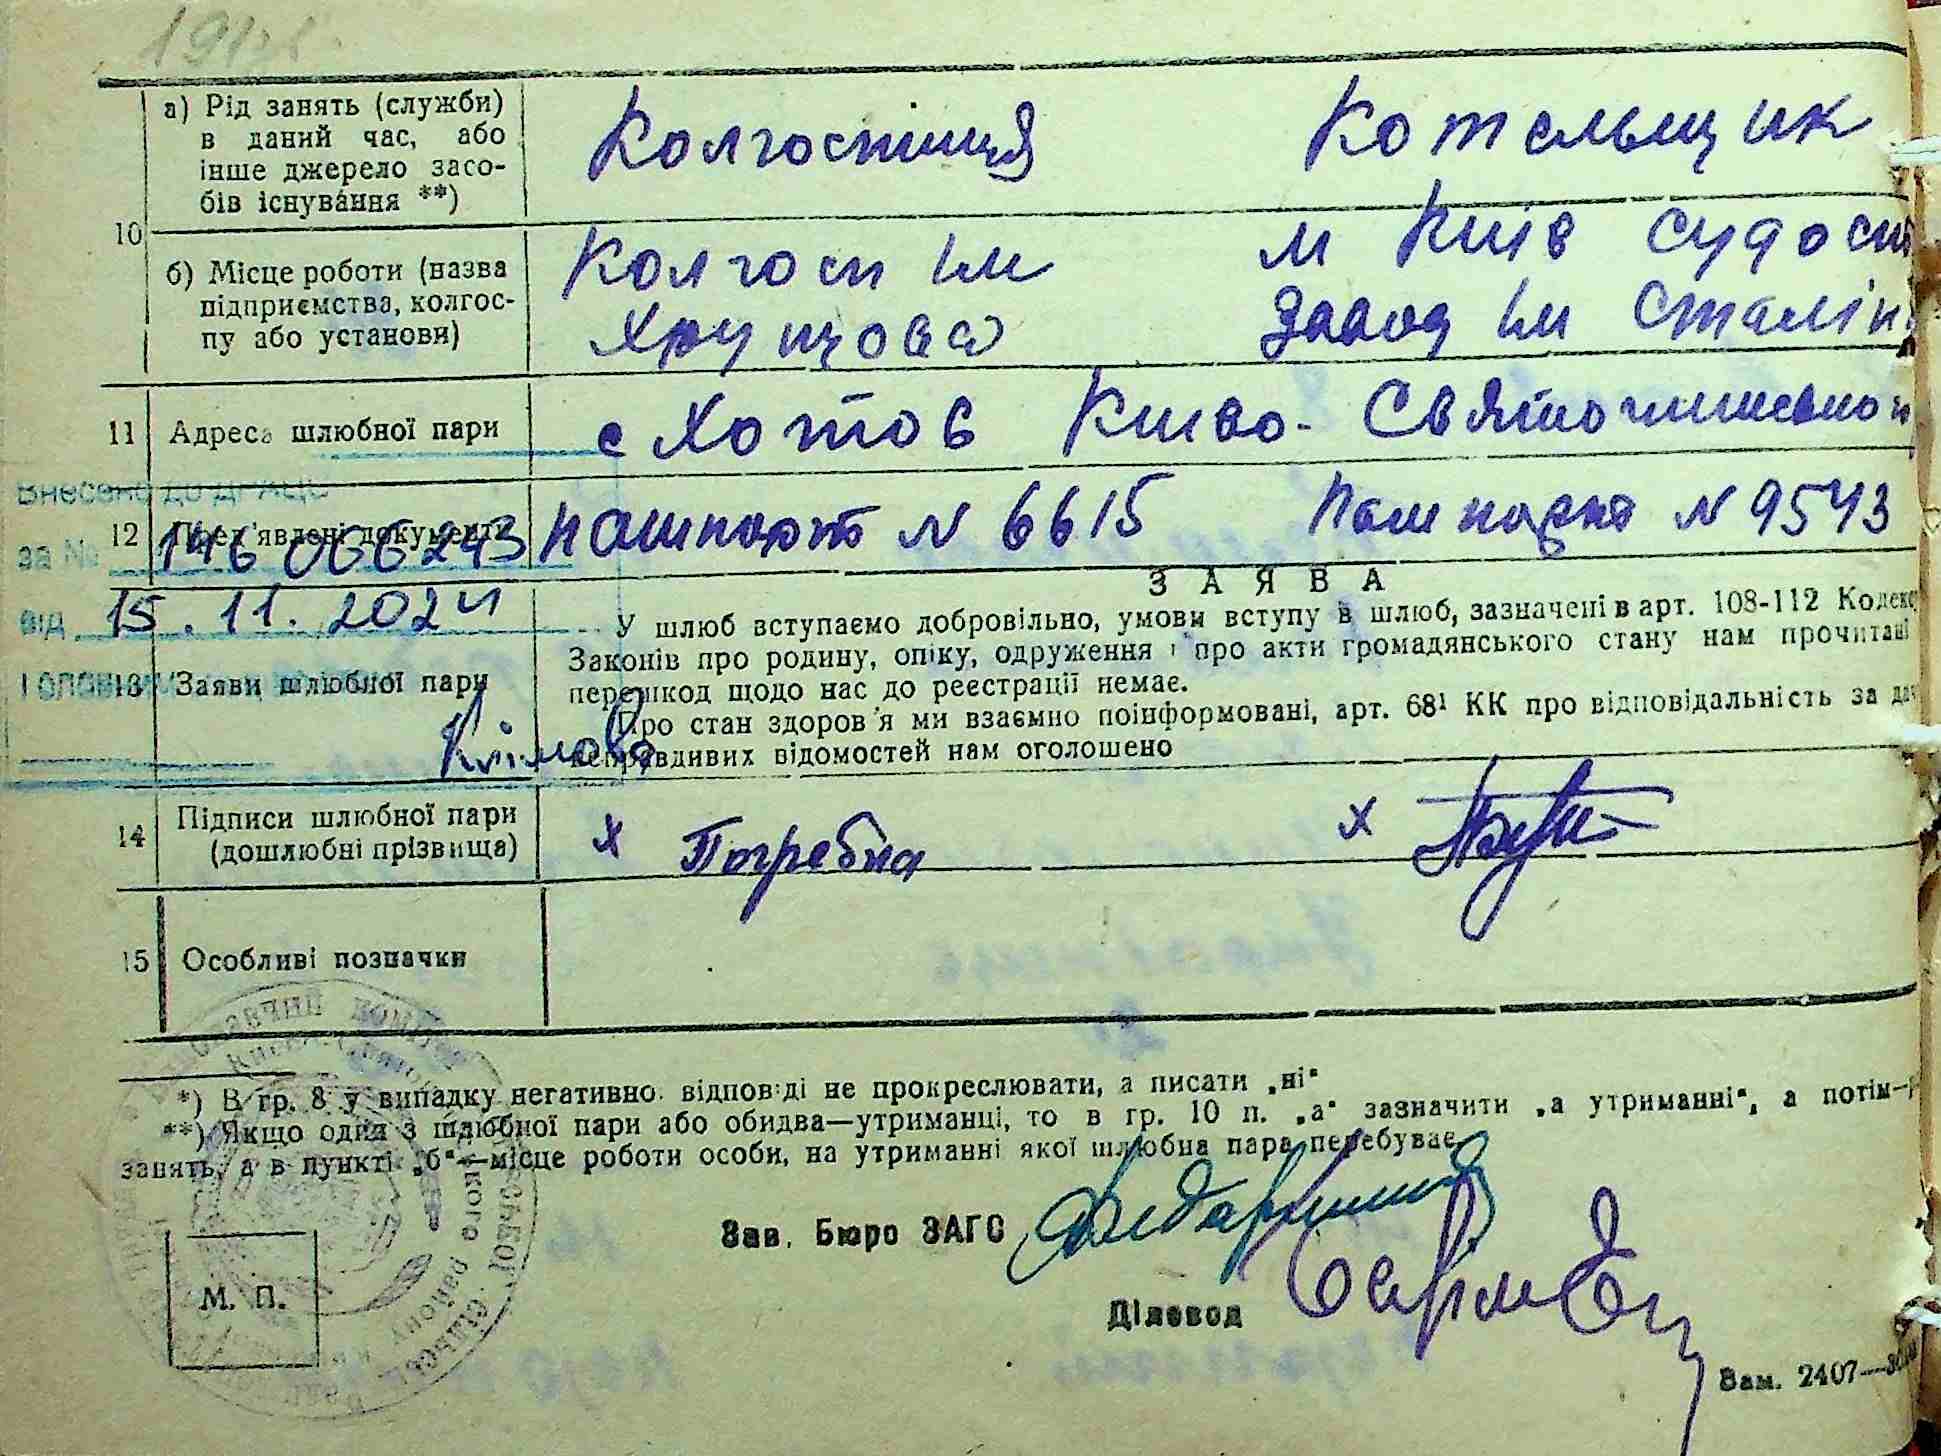 а) Рід занять (служби)
в даний час, або
інше джерело засо-
бів існування **)
Колгоспниця
Котельщик
10
б) Місце роботи (назва
підприємства, колгос-
пу або установи)
Колгосп ім
Хрущова
м Київ судост
Завод ім Сталін
11 Адреса шлюбної пари
с Хотов Києво-Святошинськог
Внесено до ДРАЦС
12 Пред'явлені документи
пашпорт N 6615
Пашпорт N 9543
за № 146 066 243
від 15.11.2024
ЗАЯВА
У шлюб вступаємо добровільно, умови вступу в шлюб, зазначені в арт. 108-112 Кодекс
Законів про родину, опіку, одруження і про акти громадянського стану нам прочитані
перешкод щодо нас до реєстрації немає.
Про стан здоров'я ми взаємно поінформовані, арт. 68¹ КК про відповідальність за дач
неправдивих відомостей нам оголошено
13 Заяви шлюбної пари
14 Підписи шлюбної пари
(дошлюбні прізвища)
х Погребна
х
15 Особливі позначки
*) В гр. 8 у випадку негативно. відповіді не прокреслювати, а писати „ні“
**) Якщо один з шлюбної пари або обидва—утриманці, то в гр. 10 п. „а“ зазначити „а утриманні“, а потім—р
занять, а в пункті „б“—місце роботи особи, на утриманні якої шлюбна пара перебуває
Зав. Бюро ЗАГС
Діловод
М. П.
Зам. 2407—